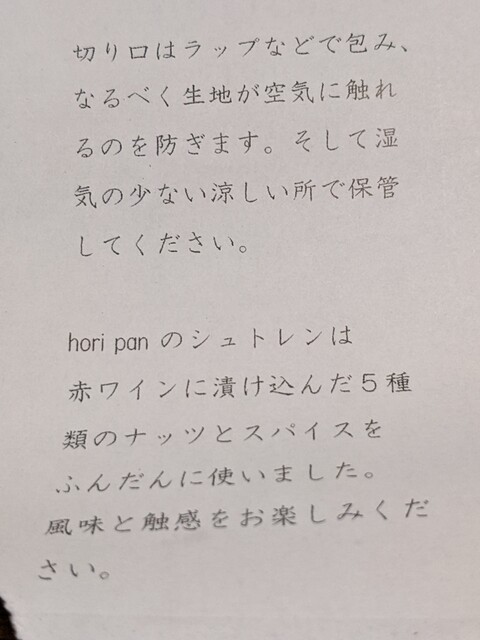 切り口はラップなどで包み、
なるべく生地が空気に触れ
るのを防ぎます。そして湿
気の少ない涼しい所で保管
してください。
hori pan のシュトレンは
赤ワインに漬け込んだ5種
類のナッツとスパイスを
ふんだんに使いました。
風味と触感をお楽しみくだ
さい。